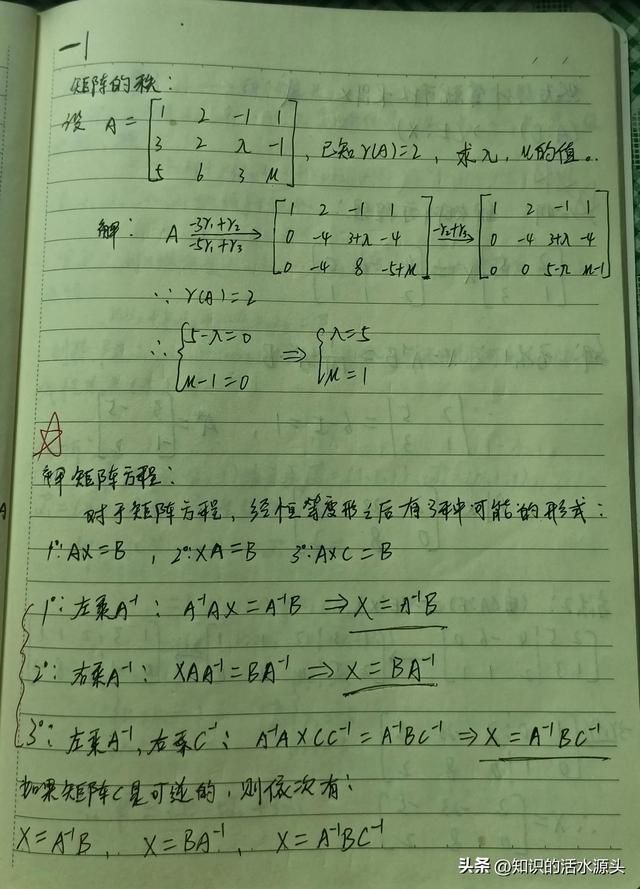 一1
矩阵的秩：
设 A = [1 2 -1 1; 3 2 λ -1; 5 6 3 μ]，已知 r(A)=2，求λ，μ的值。
解： A -3r₁+r₂ -5r₁+r₃ → [1 2 -1 1; 0 -4 3+λ -4; 0 -4 8 -5+μ] -r₂+r₃ → [1 2 -1 1; 0 -4 3+λ -4; 0 0 5-λ μ-1]
∵ r(A)=2
∴ {5-λ=0 μ-1=0 ⇒ {λ=5 μ=1
解矩阵方程：
对于矩阵方程，经恒等变形之后有3种可能的形式：
1°: AX=B ，2°: XA=B 3°: AXC=B
1°: 左乘A⁻¹： A⁻¹AX=A⁻¹B ⇒ X=A⁻¹B
2°: 右乘A⁻¹： XAA⁻¹=BA⁻¹ ⇒ X=BA⁻¹
3°: 左乘A⁻¹，右乘C⁻¹： A⁻¹AXCC⁻¹=A⁻¹BC⁻¹ ⇒ X=A⁻¹BC⁻¹
如果矩阵C是可逆的，则依次有：
X=A⁻¹B， X=BA⁻¹， X=A⁻¹BC⁻¹
头条 @知识的活水源头